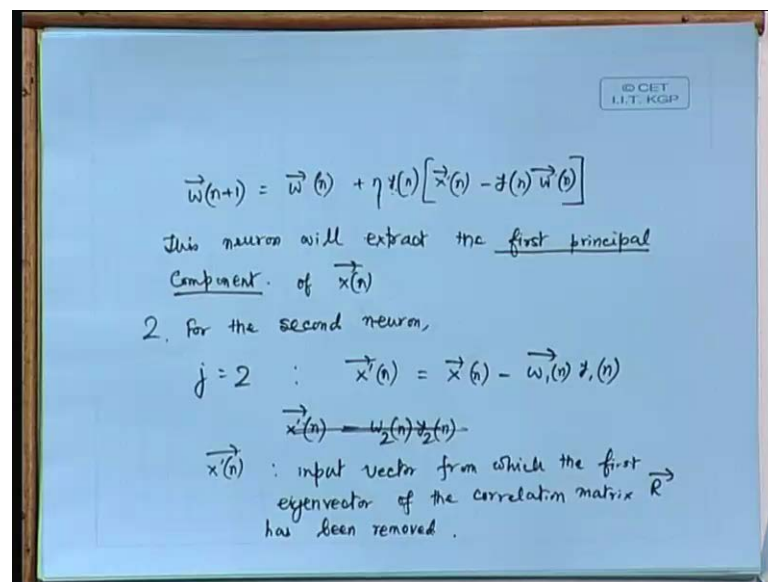 © CET
I.I.T. KGP
w⃗(n+1) = w⃗(n) + η y(n) [x⃗(n) - y(n) w⃗(n)]
This neuron will extract the first principal
Component. of x⃗(n)
2. For the second neuron,
j = 2 : x⃗'(n) = x⃗(n) - w⃗₁(n) y₁(n)
x⃗'(n) - w₂(n) y₂(n)
x⃗'(n) : input vector from which the first
eigenvector of the correlation matrix R⃗
has been removed.